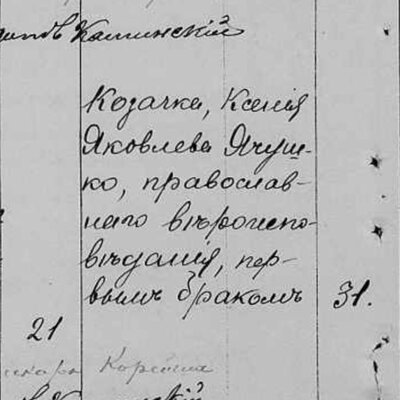 Каминскій
Козачка, Ксенія
Яковлева Ячуш-
ко, православ-
наго вѣроиспо-
вѣданія, пер-
вымъ бракомъ
31.
21